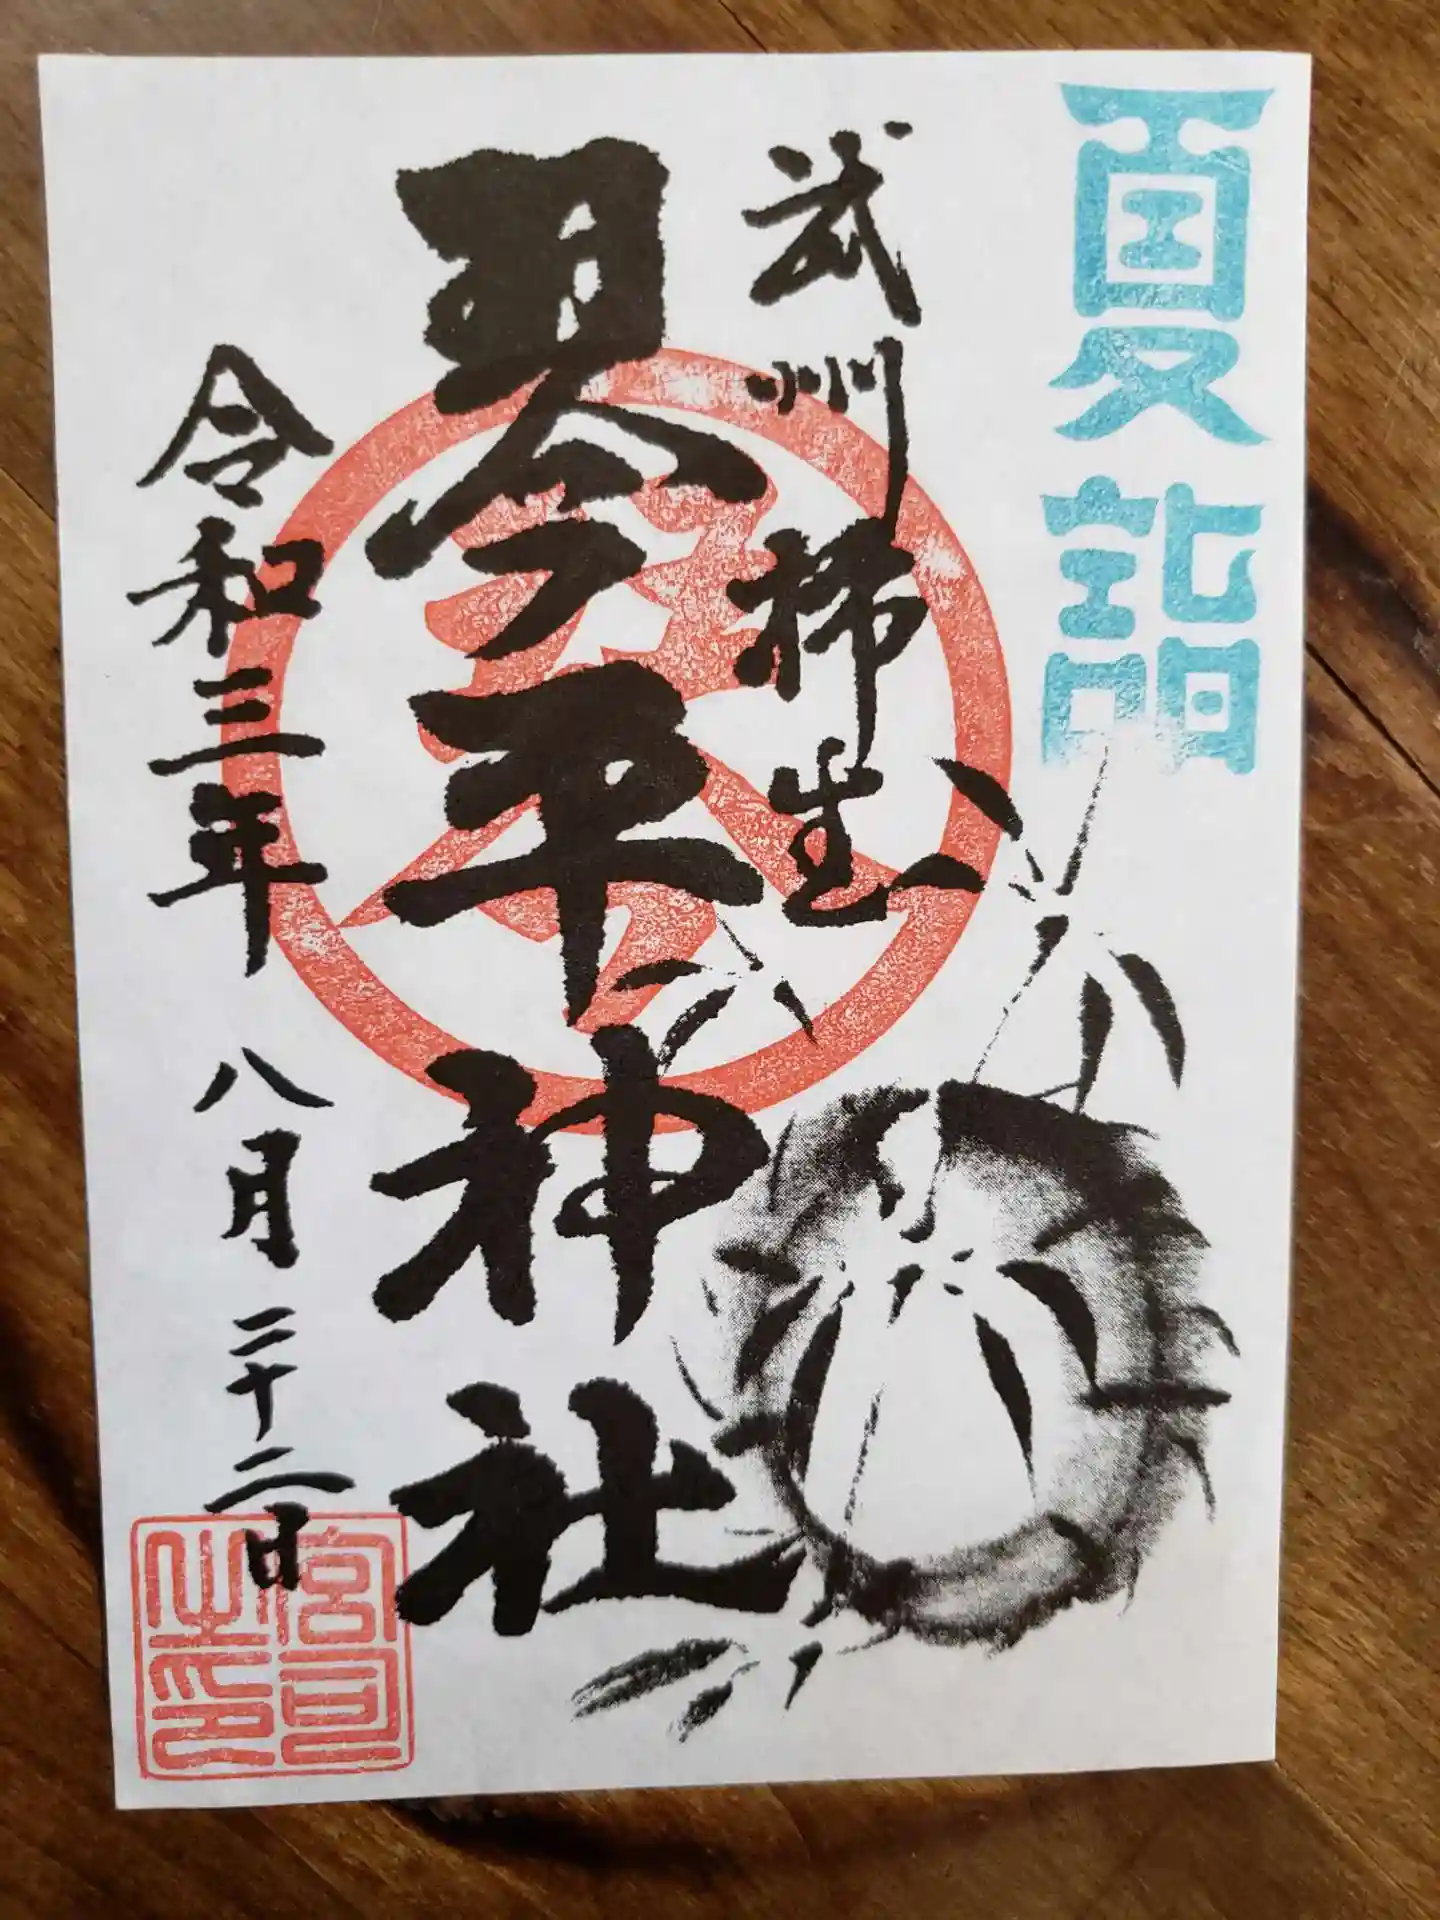 夏詣
武州柿生
琴平神社
金
令和三年 八月二十二日
宮司之印